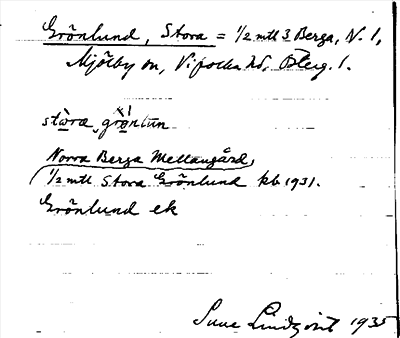 Grönlund, Stora = 1/2 mtl 3 Berga, N. 1,
Mjölby sn, Vifolka hd, Österg. l.
stora gröntun
Norra Berga Mellangård,
1/2 mtl Stora Grönlund kb 1931.
Grönlund ek
Sune Lindqvist 1935